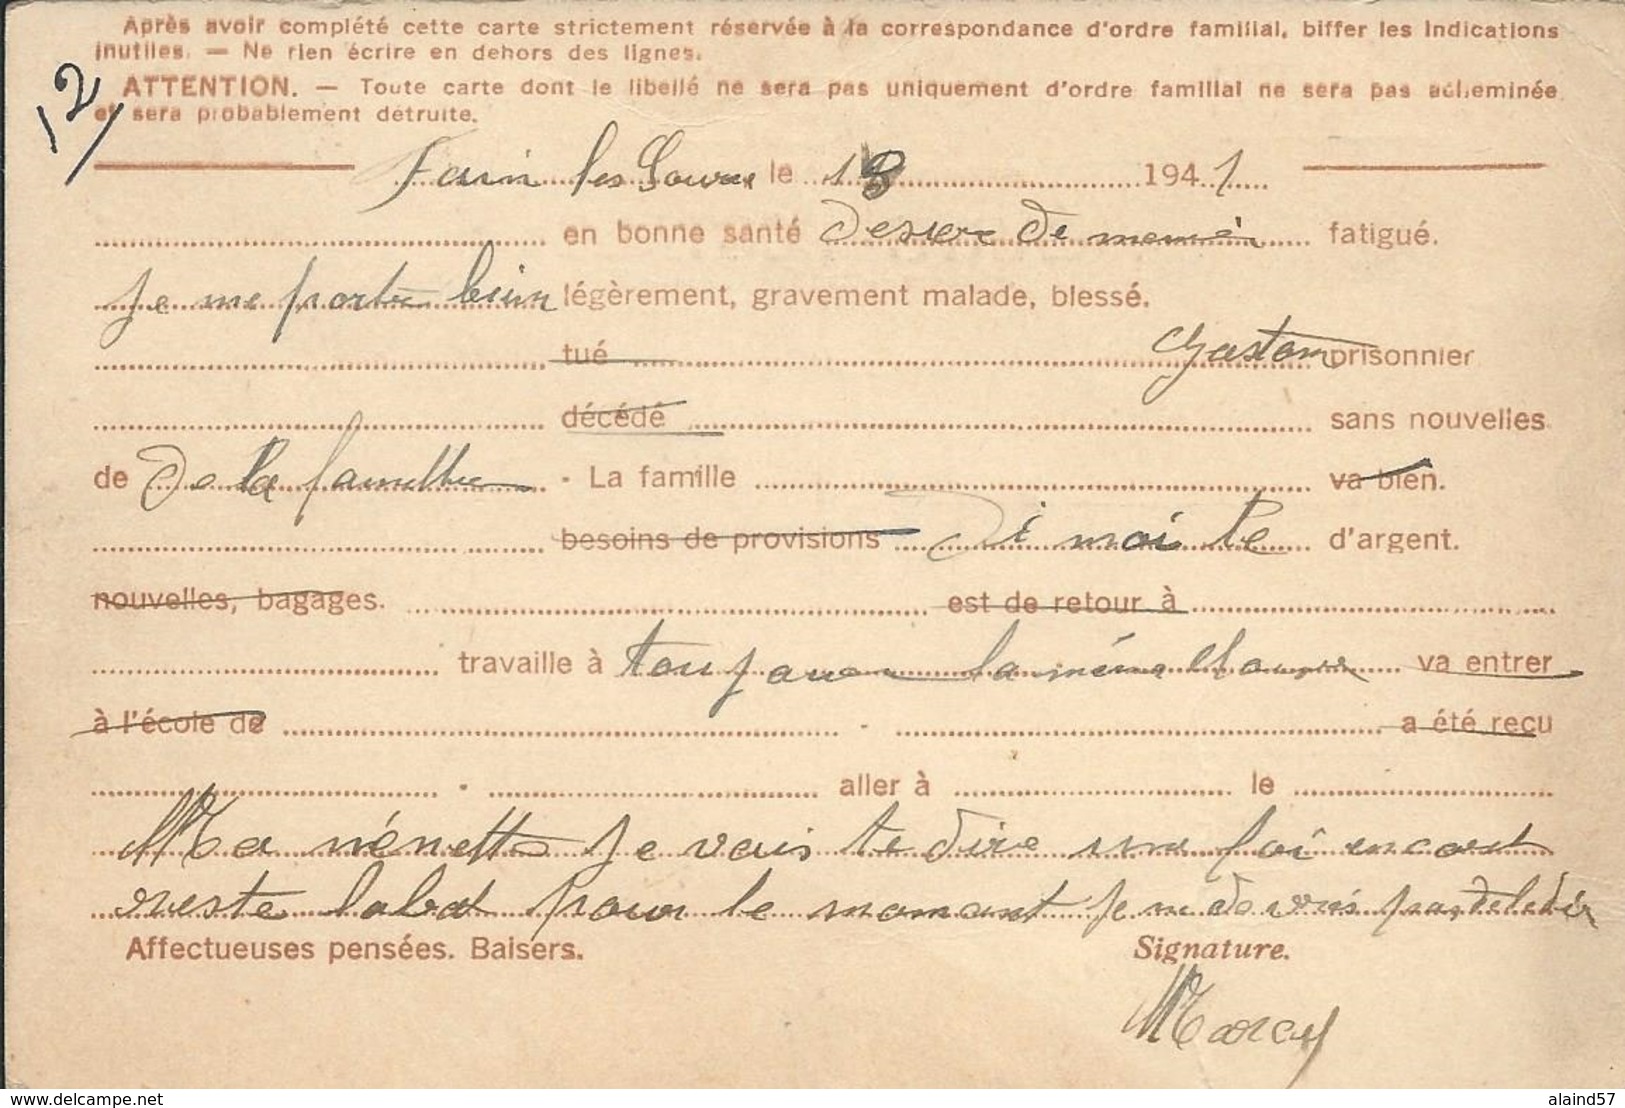 Après avoir complété cette carte strictement réservée à la correspondance d'ordre familial, biffer les indications
inutiles. — Ne rien écrire en dehors des lignes.
ATTENTION. — Toute carte dont le libellé ne sera pas uniquement d'ordre familial ne sera pas acheminée
et sera probablement détruite.
12
le 18 194 1
en bonne santé de fatigué.
Je me porte bien légèrement, gravement malade, blessé.
tué Gaston prisonnier
décédé sans nouvelles
de De la famille - La famille va bien.
besoins de provisions Di moi le d'argent.
nouvelles, bagages. est de retour à
travaille à toujour la même va entrer
à l'école de a été reçu
aller à le
Ma nénette Je vais te dire une foi encore
reste labat pour le moment Je ne vois pas
Affectueuses pensées. Baisers. Signature.
Marcel
www.delcampe.net alaind57